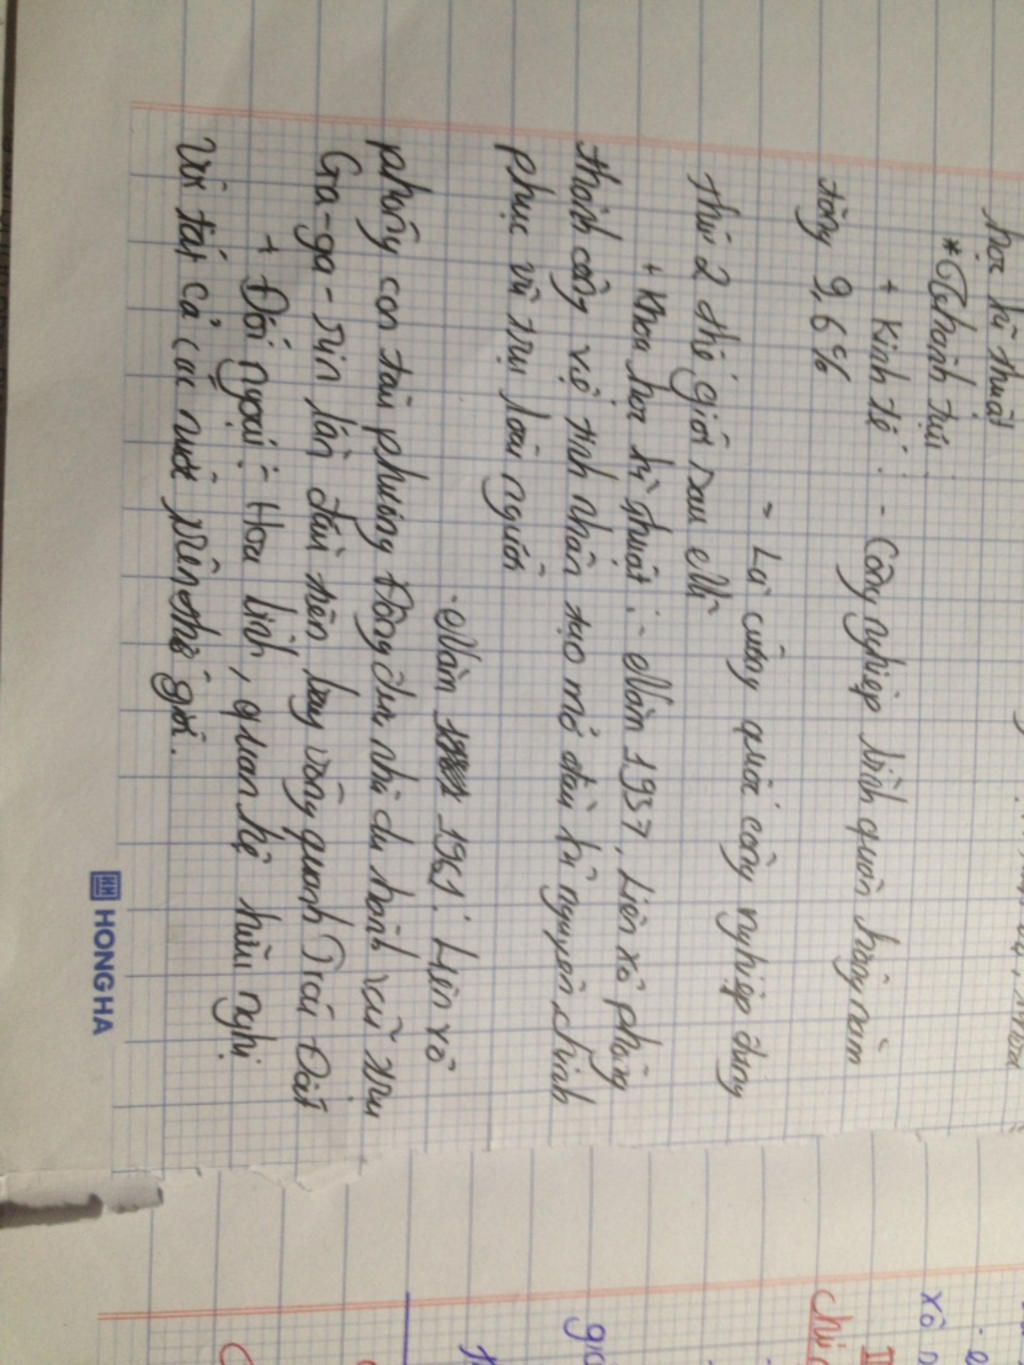 học kĩ thuật
* Thành tựu
+ Kinh tế: - Công nghiệp bình quân hàng năm
tăng 9,6%
- Là cường quốc công nghiệp đứng
thứ 2 thế giới sau Mĩ
+ Khoa học kĩ thuật: - Năm 1957, Liên xô phóng
thành công vệ tinh nhân tạo mở đầu kỉ nguyên chinh
phục vũ trụ loài người
- Năm 1961: Liên xô
phóng con tàu phương Đông đưa nhà du hành vũ trụ
Ga-ga-rin lần đầu tiên bay vòng quanh Trái Đất
+ Đối ngoại: - Hoà bình, quan hệ hữu nghị
Với tất cả các nước trên thế giới.
HONG HA
xô